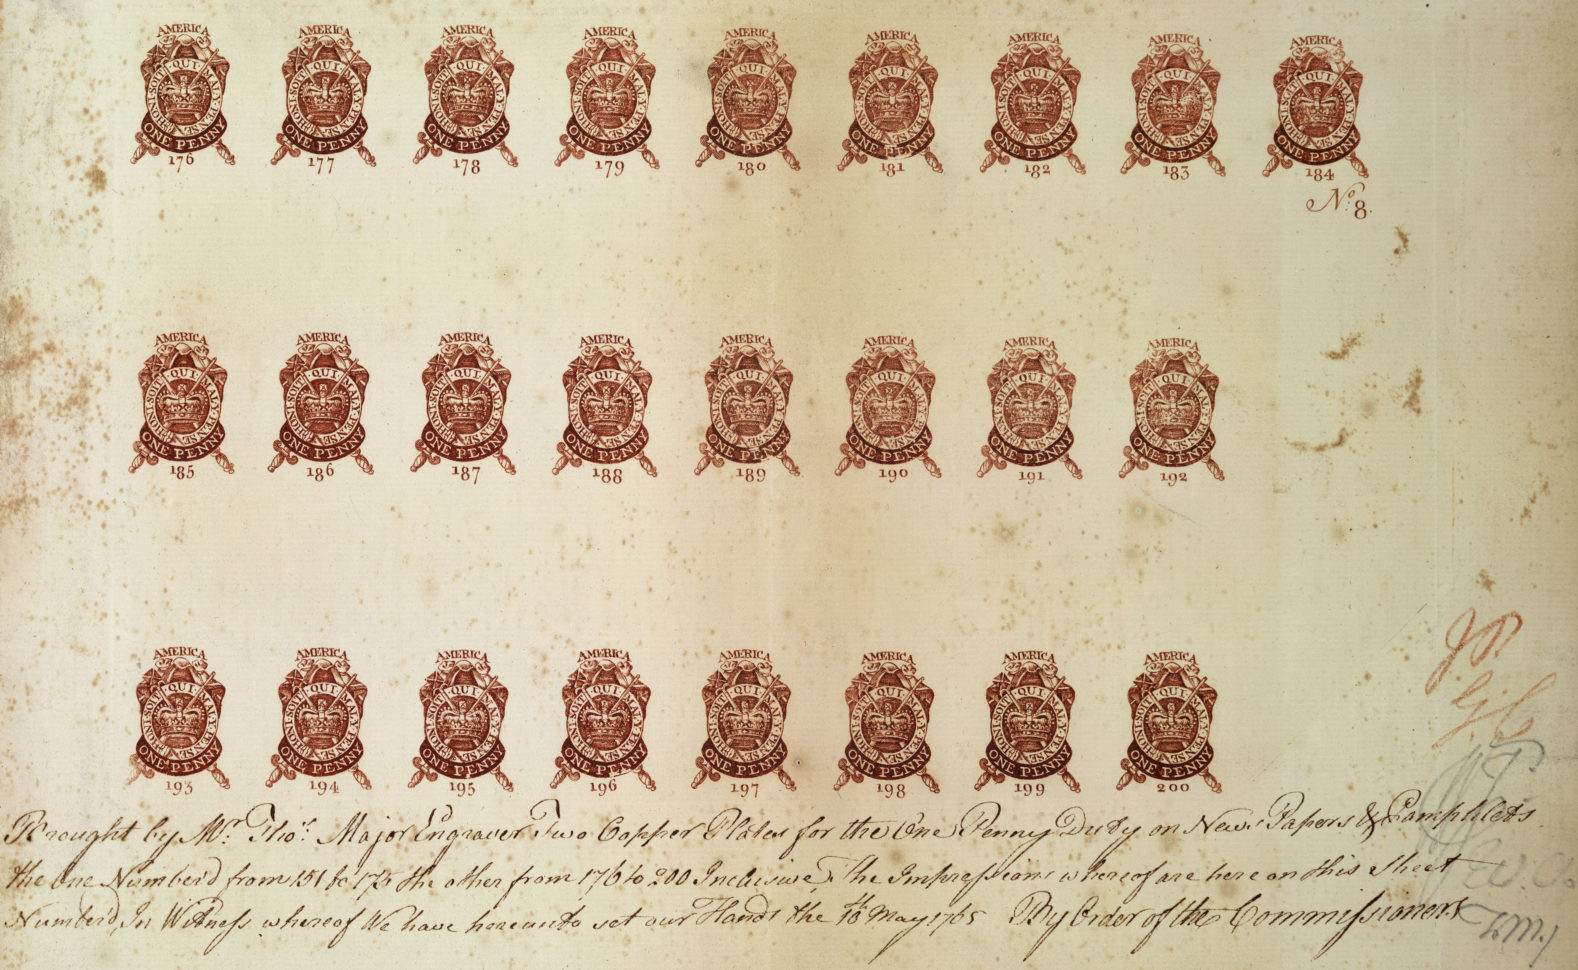 AMERICA AMERICA AMERICA AMERICA AMERICA AMERICA AMERICA AMERICA AMERICA
HONI SOIT QUI MAL Y PENSE HONI SOIT QUI MAL Y PENSE HONI SOIT QUI MAL Y PENSE HONI SOIT QUI MAL Y PENSE HONI SOIT QUI MAL Y PENSE HONI SOIT QUI MAL Y PENSE HONI SOIT QUI MAL Y PENSE HONI SOIT QUI MAL Y PENSE HONI SOIT QUI MAL Y PENSE
ONE PENNY ONE PENNY ONE PENNY ONE PENNY ONE PENNY ONE PENNY ONE PENNY ONE PENNY ONE PENNY
176 177 178 179 180 181 182 183 184
No. 8.
AMERICA AMERICA AMERICA AMERICA AMERICA AMERICA AMERICA AMERICA
HONI SOIT QUI MAL Y PENSE HONI SOIT QUI MAL Y PENSE HONI SOIT QUI MAL Y PENSE HONI SOIT QUI MAL Y PENSE HONI SOIT QUI MAL Y PENSE HONI SOIT QUI MAL Y PENSE HONI SOIT QUI MAL Y PENSE HONI SOIT QUI MAL Y PENSE
ONE PENNY ONE PENNY ONE PENNY ONE PENNY ONE PENNY ONE PENNY ONE PENNY ONE PENNY
185 186 187 188 189 190 191 192
AMERICA AMERICA AMERICA AMERICA AMERICA AMERICA AMERICA AMERICA
HONI SOIT QUI MAL Y PENSE HONI SOIT QUI MAL Y PENSE HONI SOIT QUI MAL Y PENSE HONI SOIT QUI MAL Y PENSE HONI SOIT QUI MAL Y PENSE HONI SOIT QUI MAL Y PENSE HONI SOIT QUI MAL Y PENSE HONI SOIT QUI MAL Y PENSE
ONE PENNY ONE PENNY ONE PENNY ONE PENNY ONE PENNY ONE PENNY ONE PENNY ONE PENNY
193 194 195 196 197 198 199 200
Brought by Mr. Thos. Major Engraver Two Copper Plates for the One Penny Duty on News Papers & Pamphlets
the one Number'd from 151 to 175 the other from 176 to 200 Inclusive, The Impressions whereof are here on this Sheet
Number'd, In Witness whereof We have hereunto set our Hands the May 1765 By Order of the Commissioners